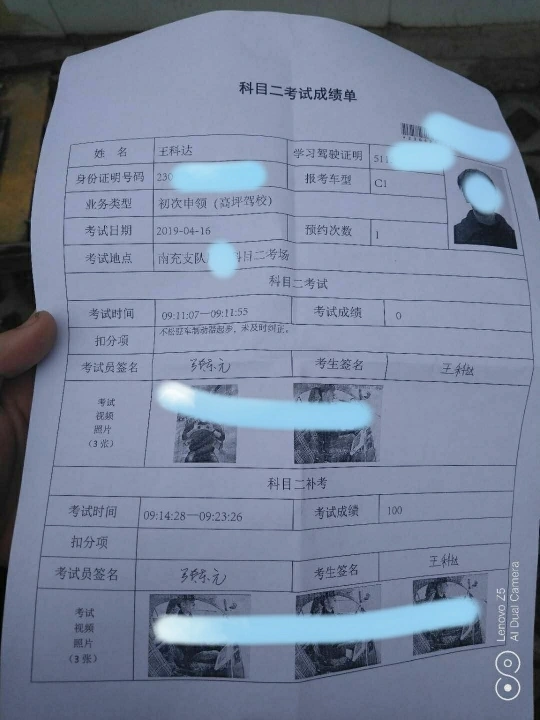 科目二考试成绩单
姓 名 王科达 学习驾驶证明 511
身份证明号码 230 报考车型 C1
业务类型 初次申领（高坪驾校）
考试日期 2019-04-16 预约次数 1
考试地点 南充支队 科目二考场
科目二考试
考试时间 09:11:07—09:11:55 考试成绩 0
扣分项 不松驻车制动器起步，未及时纠正。
考试员签名 考生签名 王科达
考试
视频
照片
（3 张）
科目二补考
考试时间 09:14:28—09:23:26 考试成绩 100
扣分项
考试员签名 考生签名 王科达
考试
视频
照片
（3 张）
Lenovo Z5
AI Dual Camera